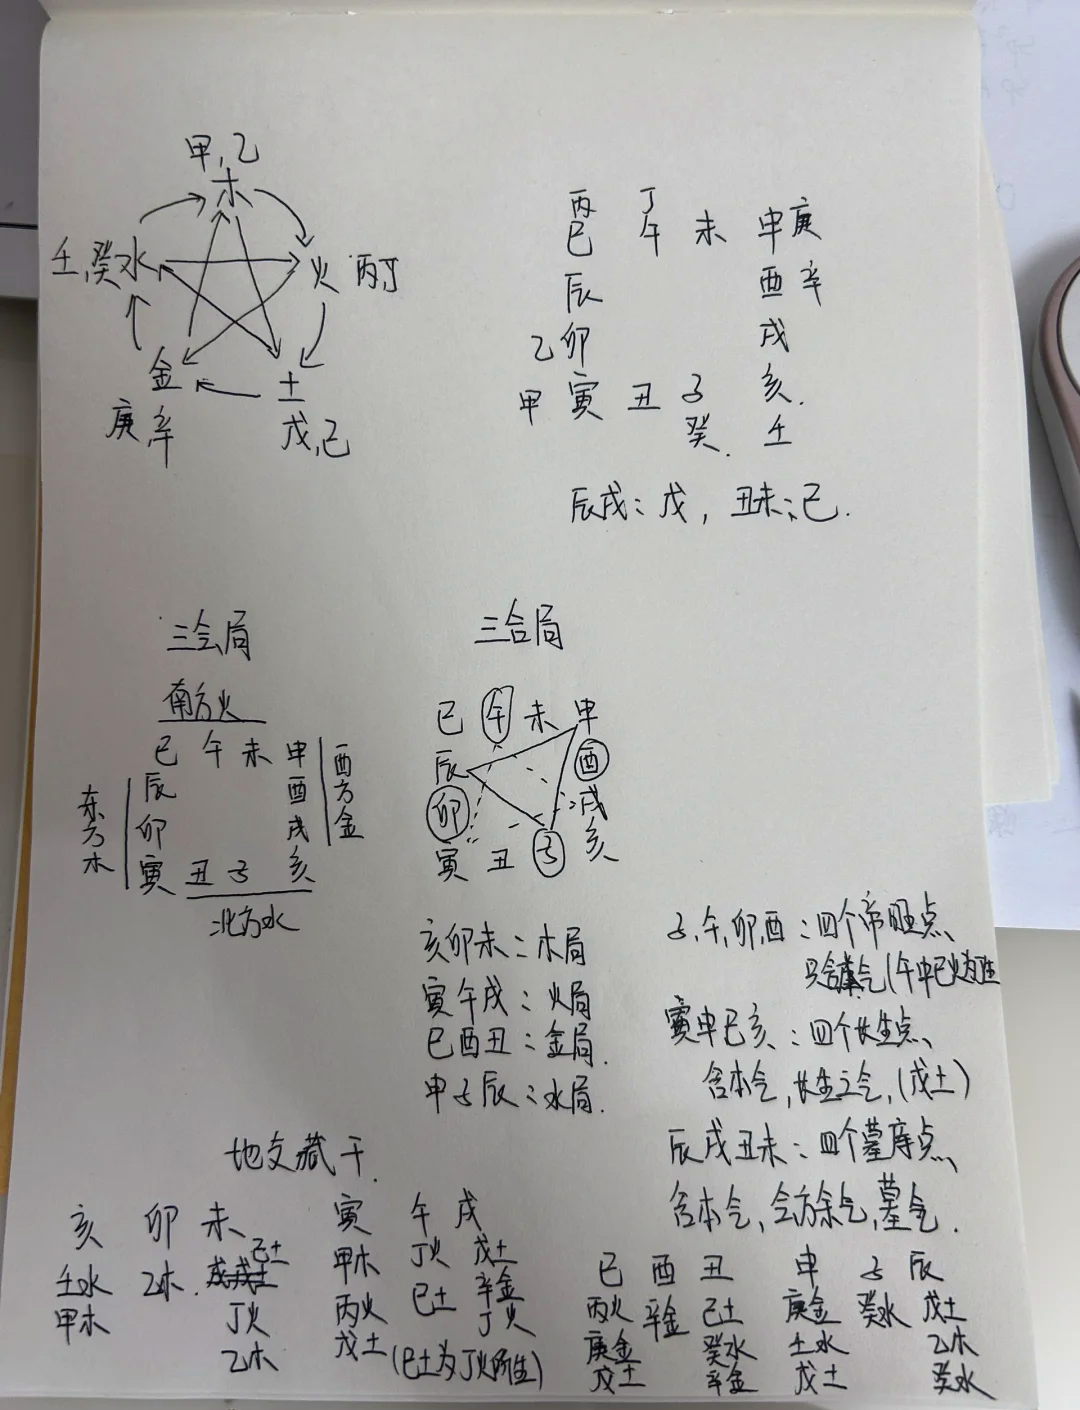 甲,乙
木
壬,癸水
火 丙丁
金
土
庚,辛
戊,己
丙 丁
巳 午 未 申庚
辰 酉 辛
乙卯 戌
甲 寅 丑 子 亥.
癸. 壬
辰戌:戊,丑未:己.
三会局
南方火
巳 午 未 申
辰 酉
卯 戌
寅 丑 子 亥
东方木
西方金
北方水
三合局
巳 午 未 申
辰 酉
卯 戌
寅 丑 子 亥
亥卯未:木局
寅午戌:火局
巳酉丑:金局.
申子辰:水局.
子,午,卯,酉:四个帝旺点、
只含本气(午中己火为生
寅申巳亥:四个长生点、
含本气,长生之气,(戊土)
辰戌丑未:四个墓库点、
含本气,会方余气,墓气.
地支藏干.
亥 卯 未
壬水 乙木. 己土
甲木 丁火
乙木
寅 午 戌
甲木 丁火 戊土
丙火 己土 辛金
戊土 丁火
(己土为丁火所生)
巳 酉 丑
丙火 辛金 己土
庚金 癸水
戊土 辛金
申 子 辰
庚金 癸水 戊土
壬水 乙木
戊土 癸水